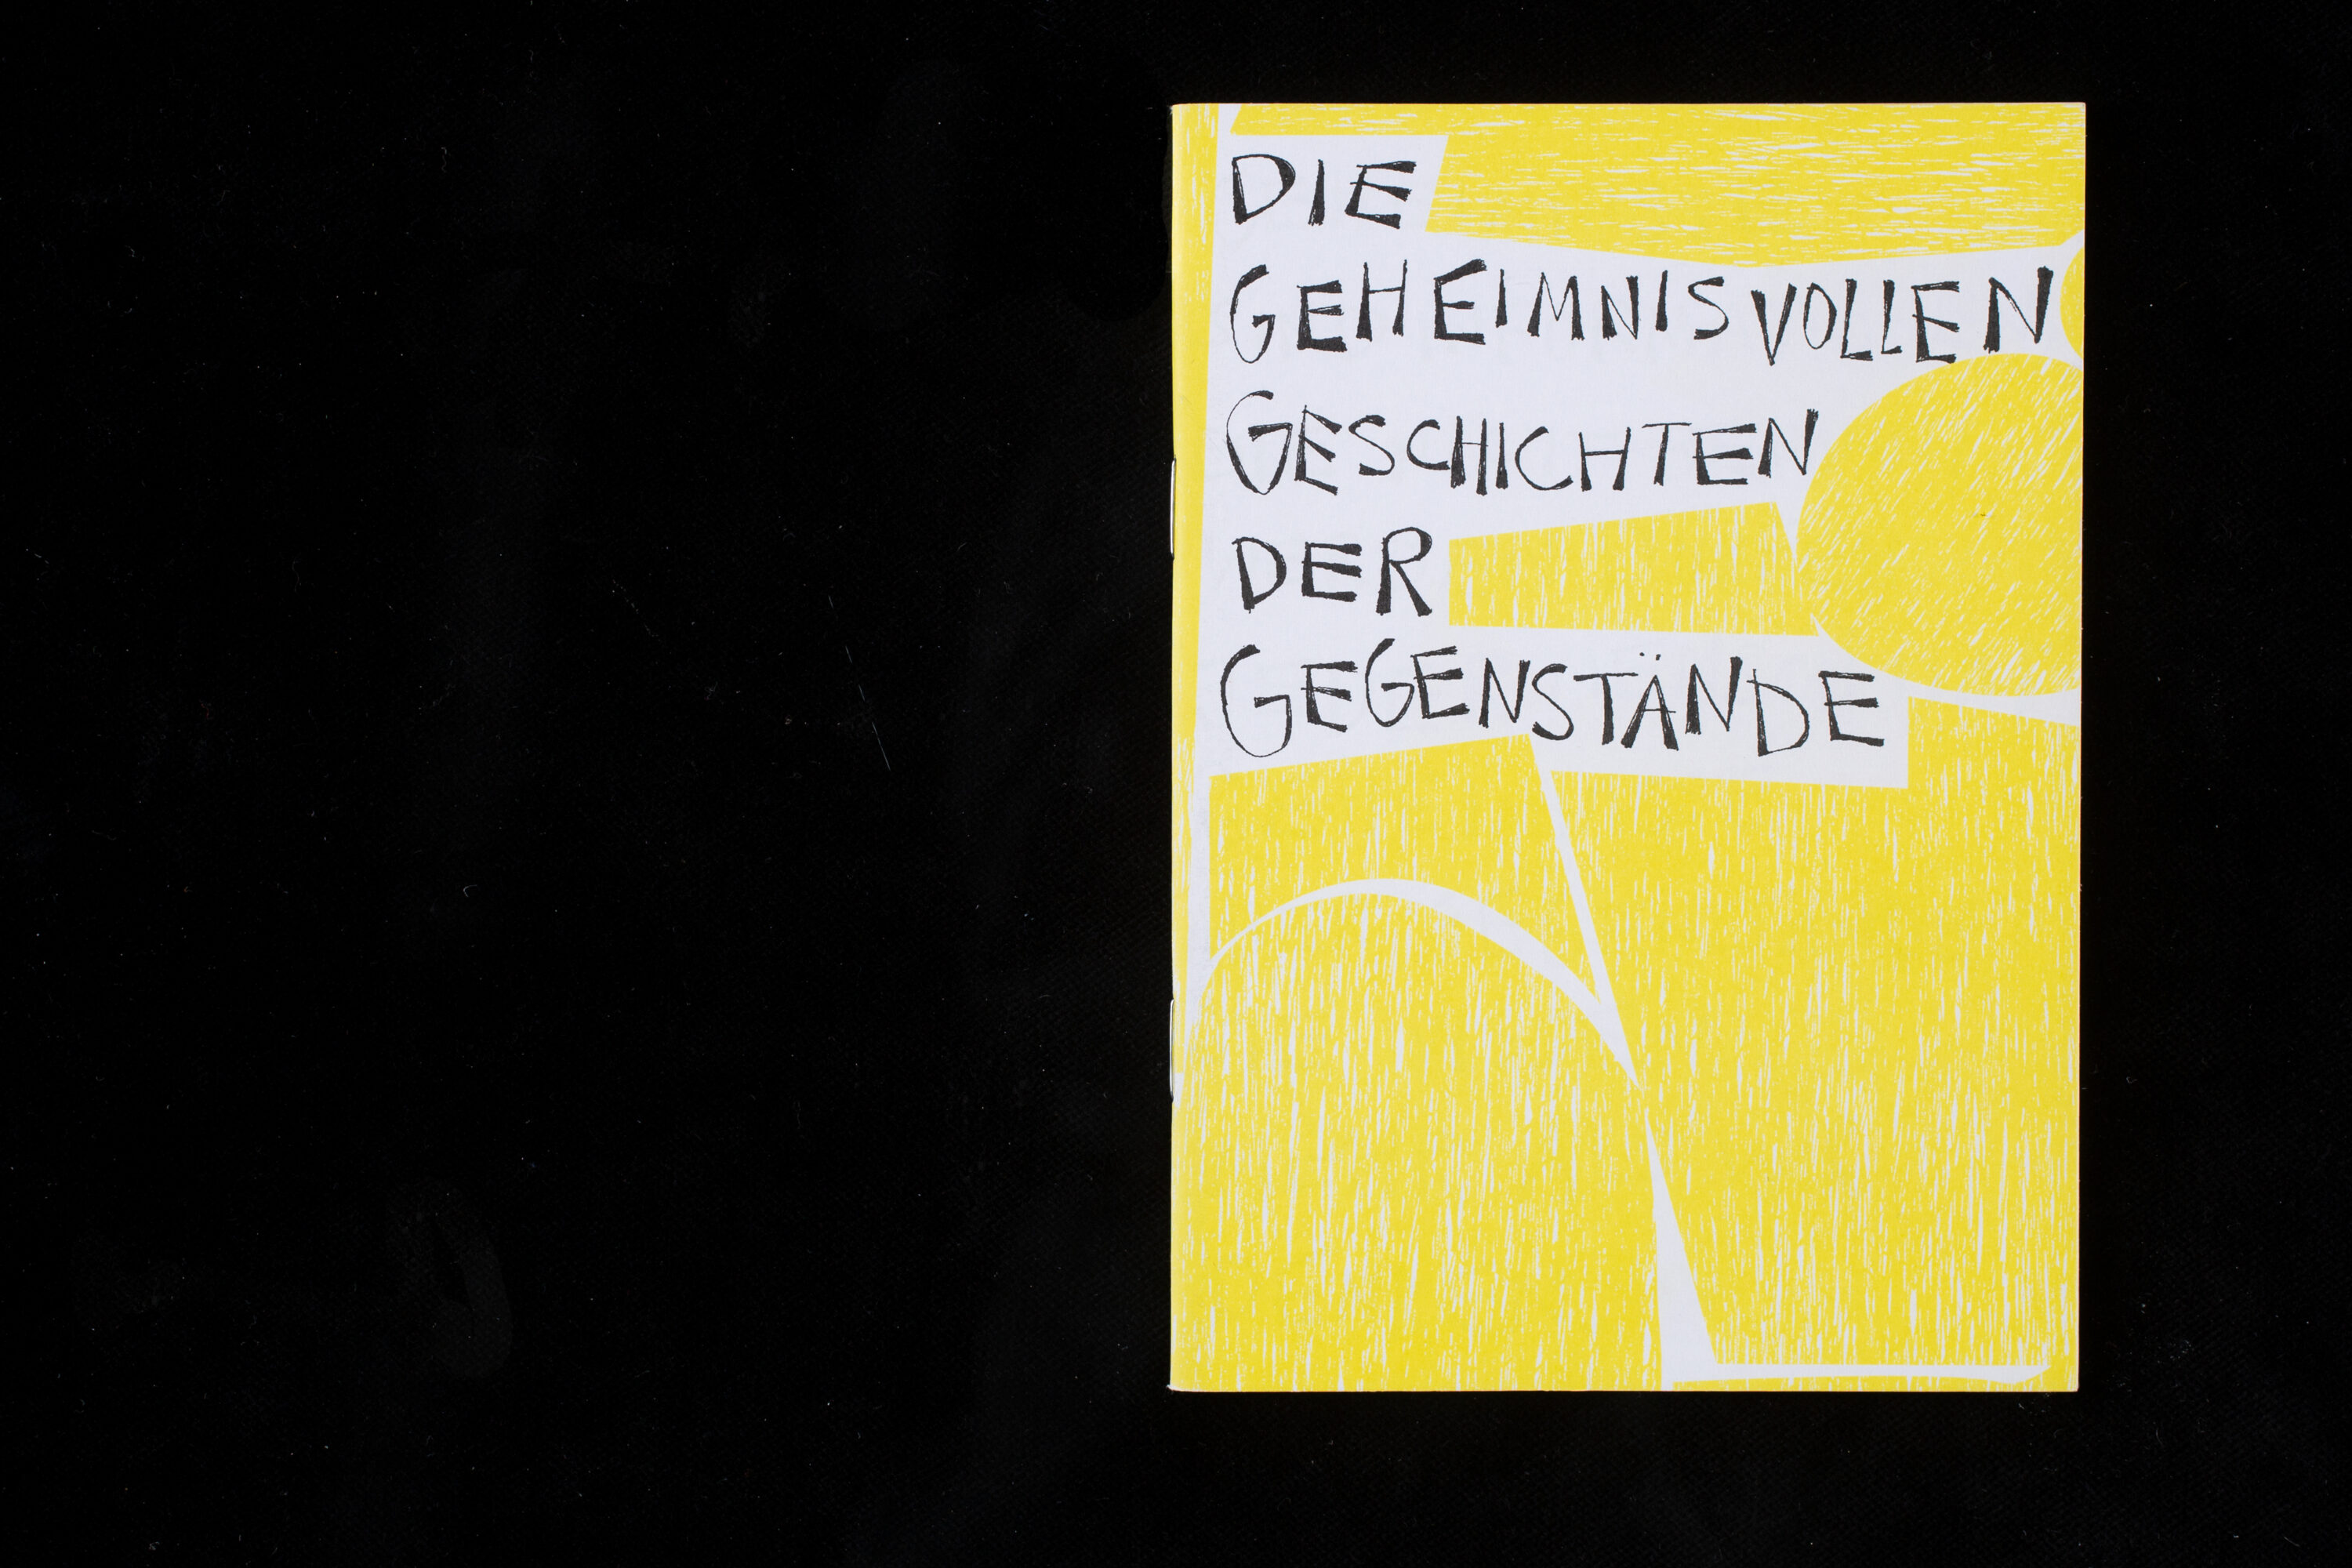 DIE
GEHEIMNISVOLLEN
GESCHICHTEN
DER
GEGENSTÄNDE